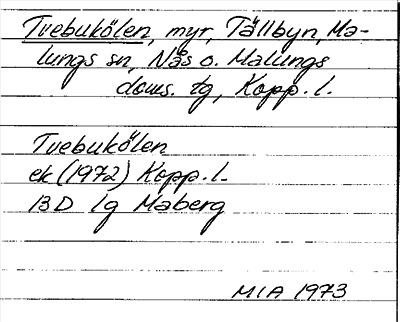 Tvebukölen, myr, Tällbyn, Ma-
lungs sn, Nås o. Malungs
doms. tg, Kopp. l.
Tvebukölen
ek (1972) Kopp. l.
13D 1g Maberg
MIA 1973